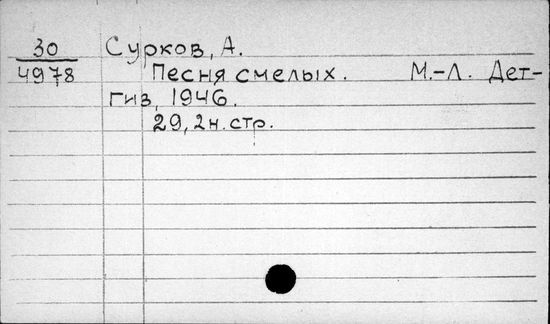 30 Сурков, А.
4978 Песня смелых. М.-Л. Дет-
гиз, 1946.
29, 2н. стр.